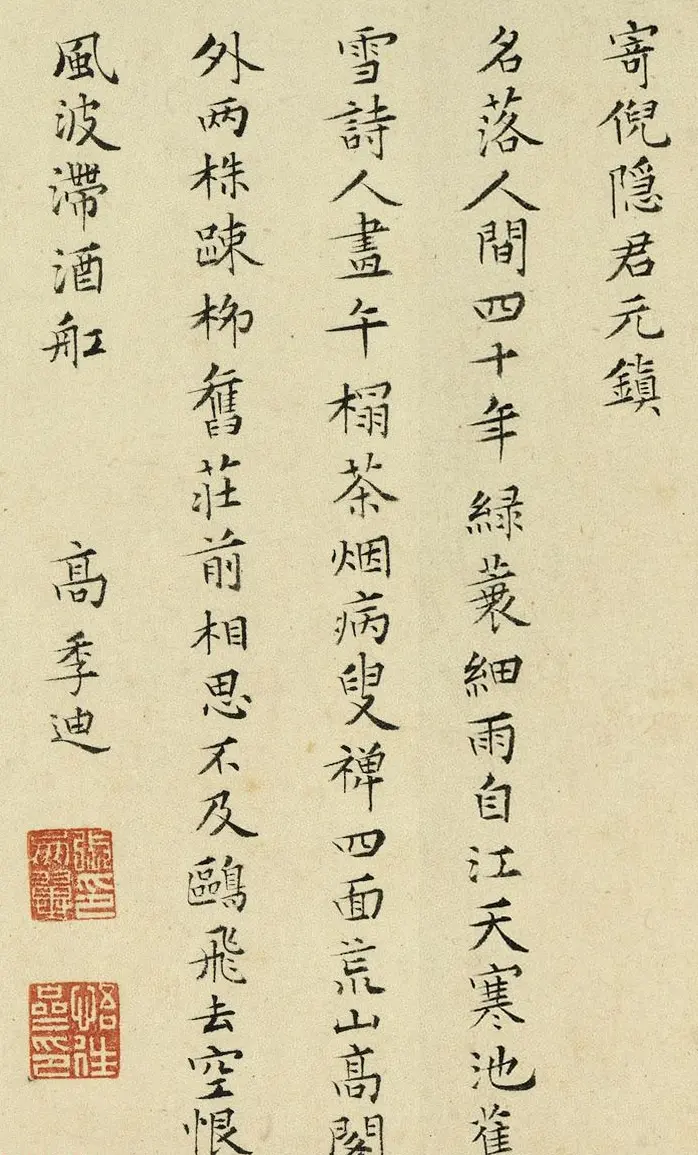 寄倪隐君元鎮
名落人間四十年緑蓑細雨自江天寒池蕉
雪詩人畫午榻茶烟病叟禅四面荒山髙閣
外两株踈栁舊莊前相思不及鷗飛去空恨
風波滯酒舡
髙季迪